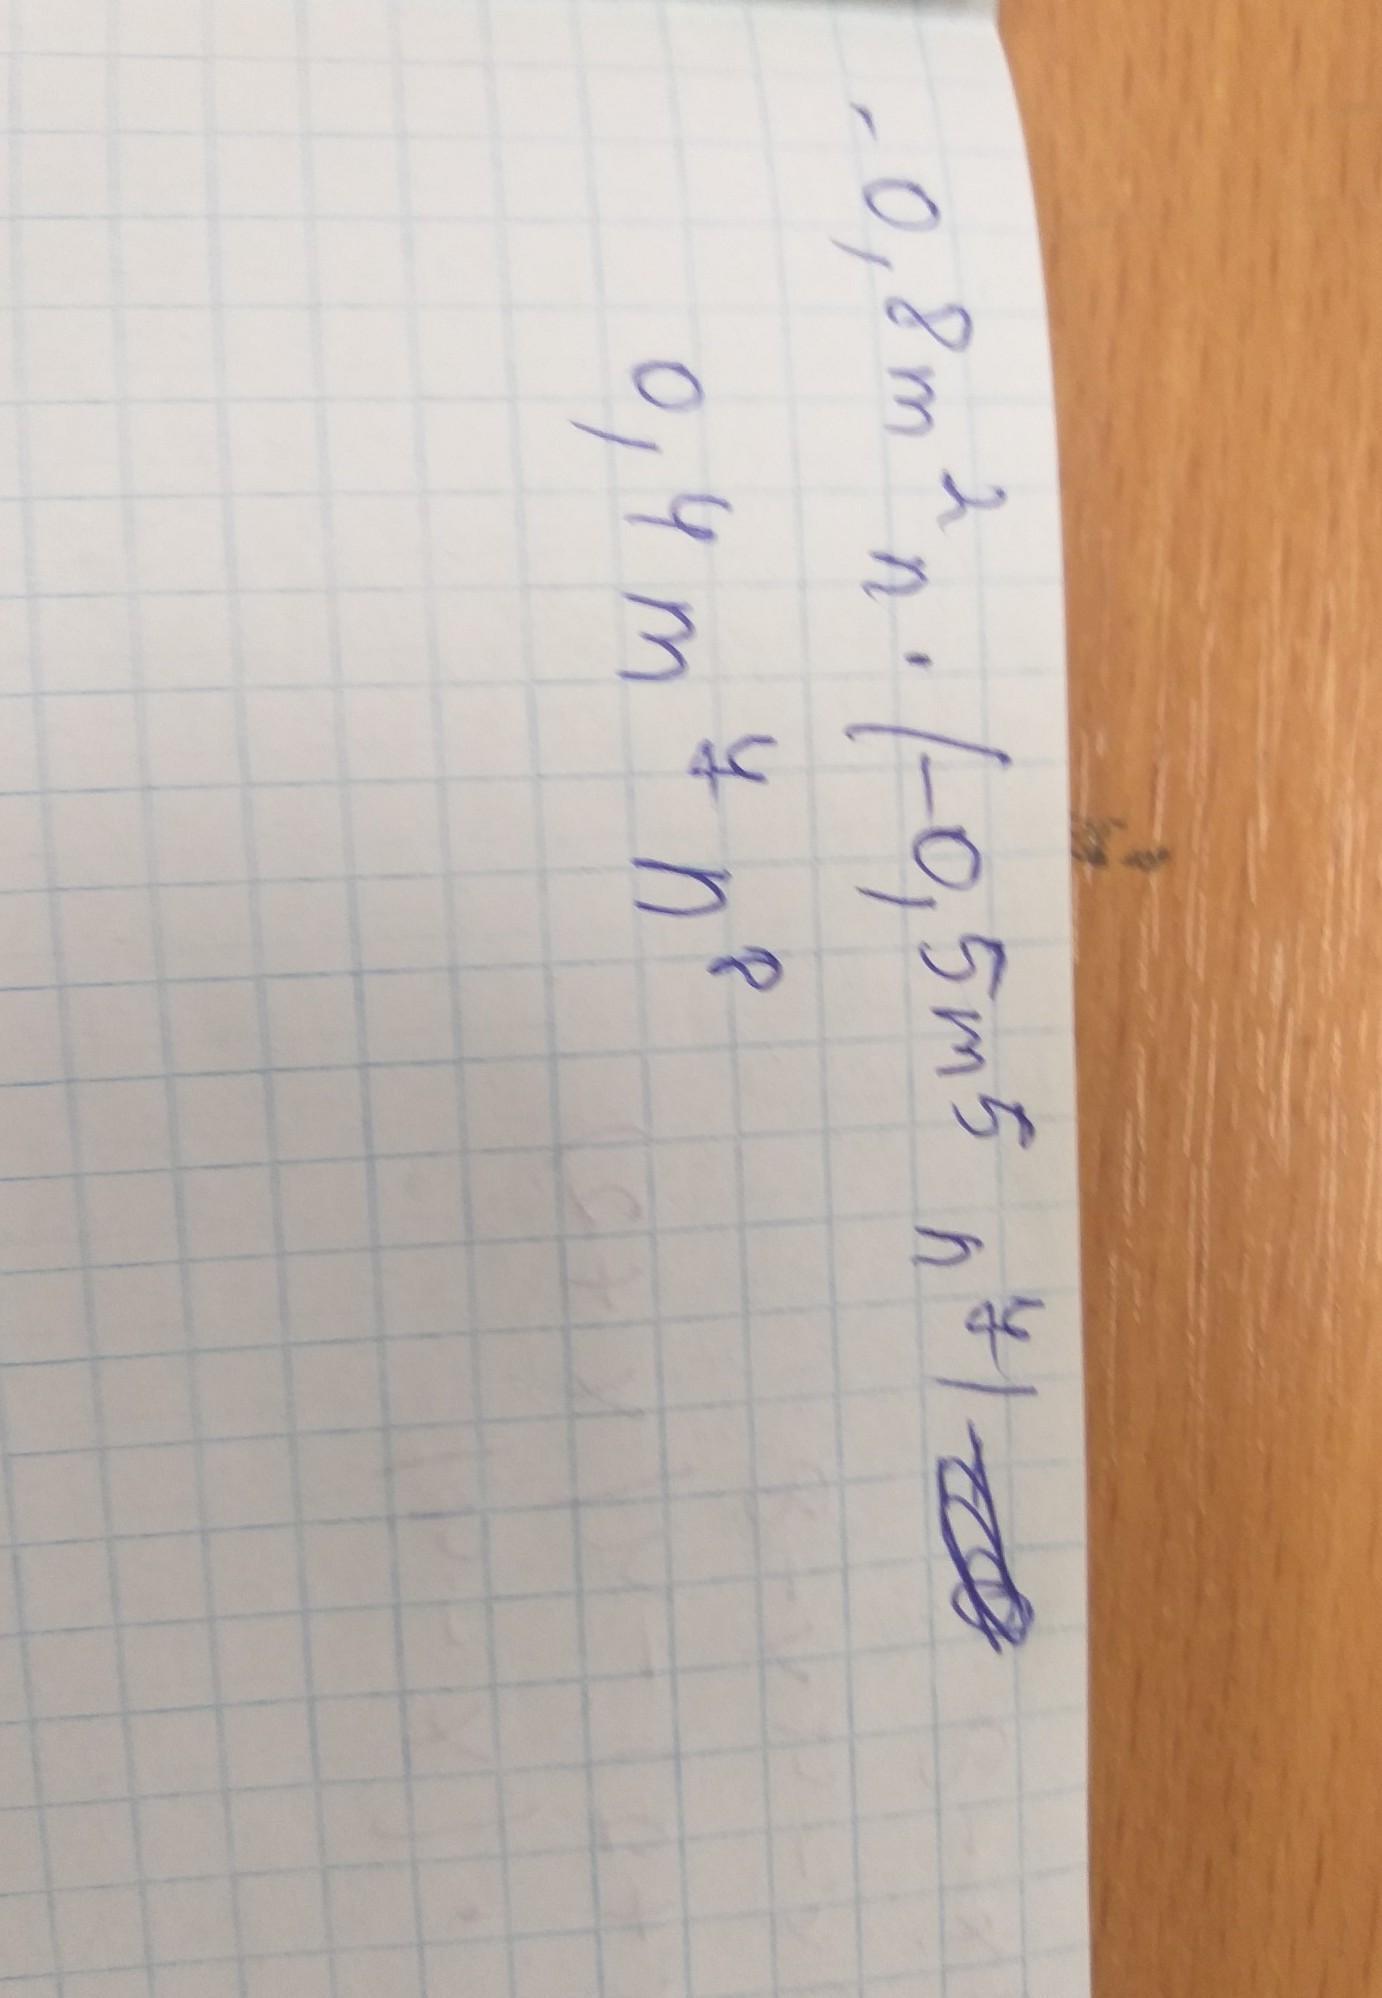 -0,8m²n·(-0,5m⁵n⁷)
0,4m⁷n⁸